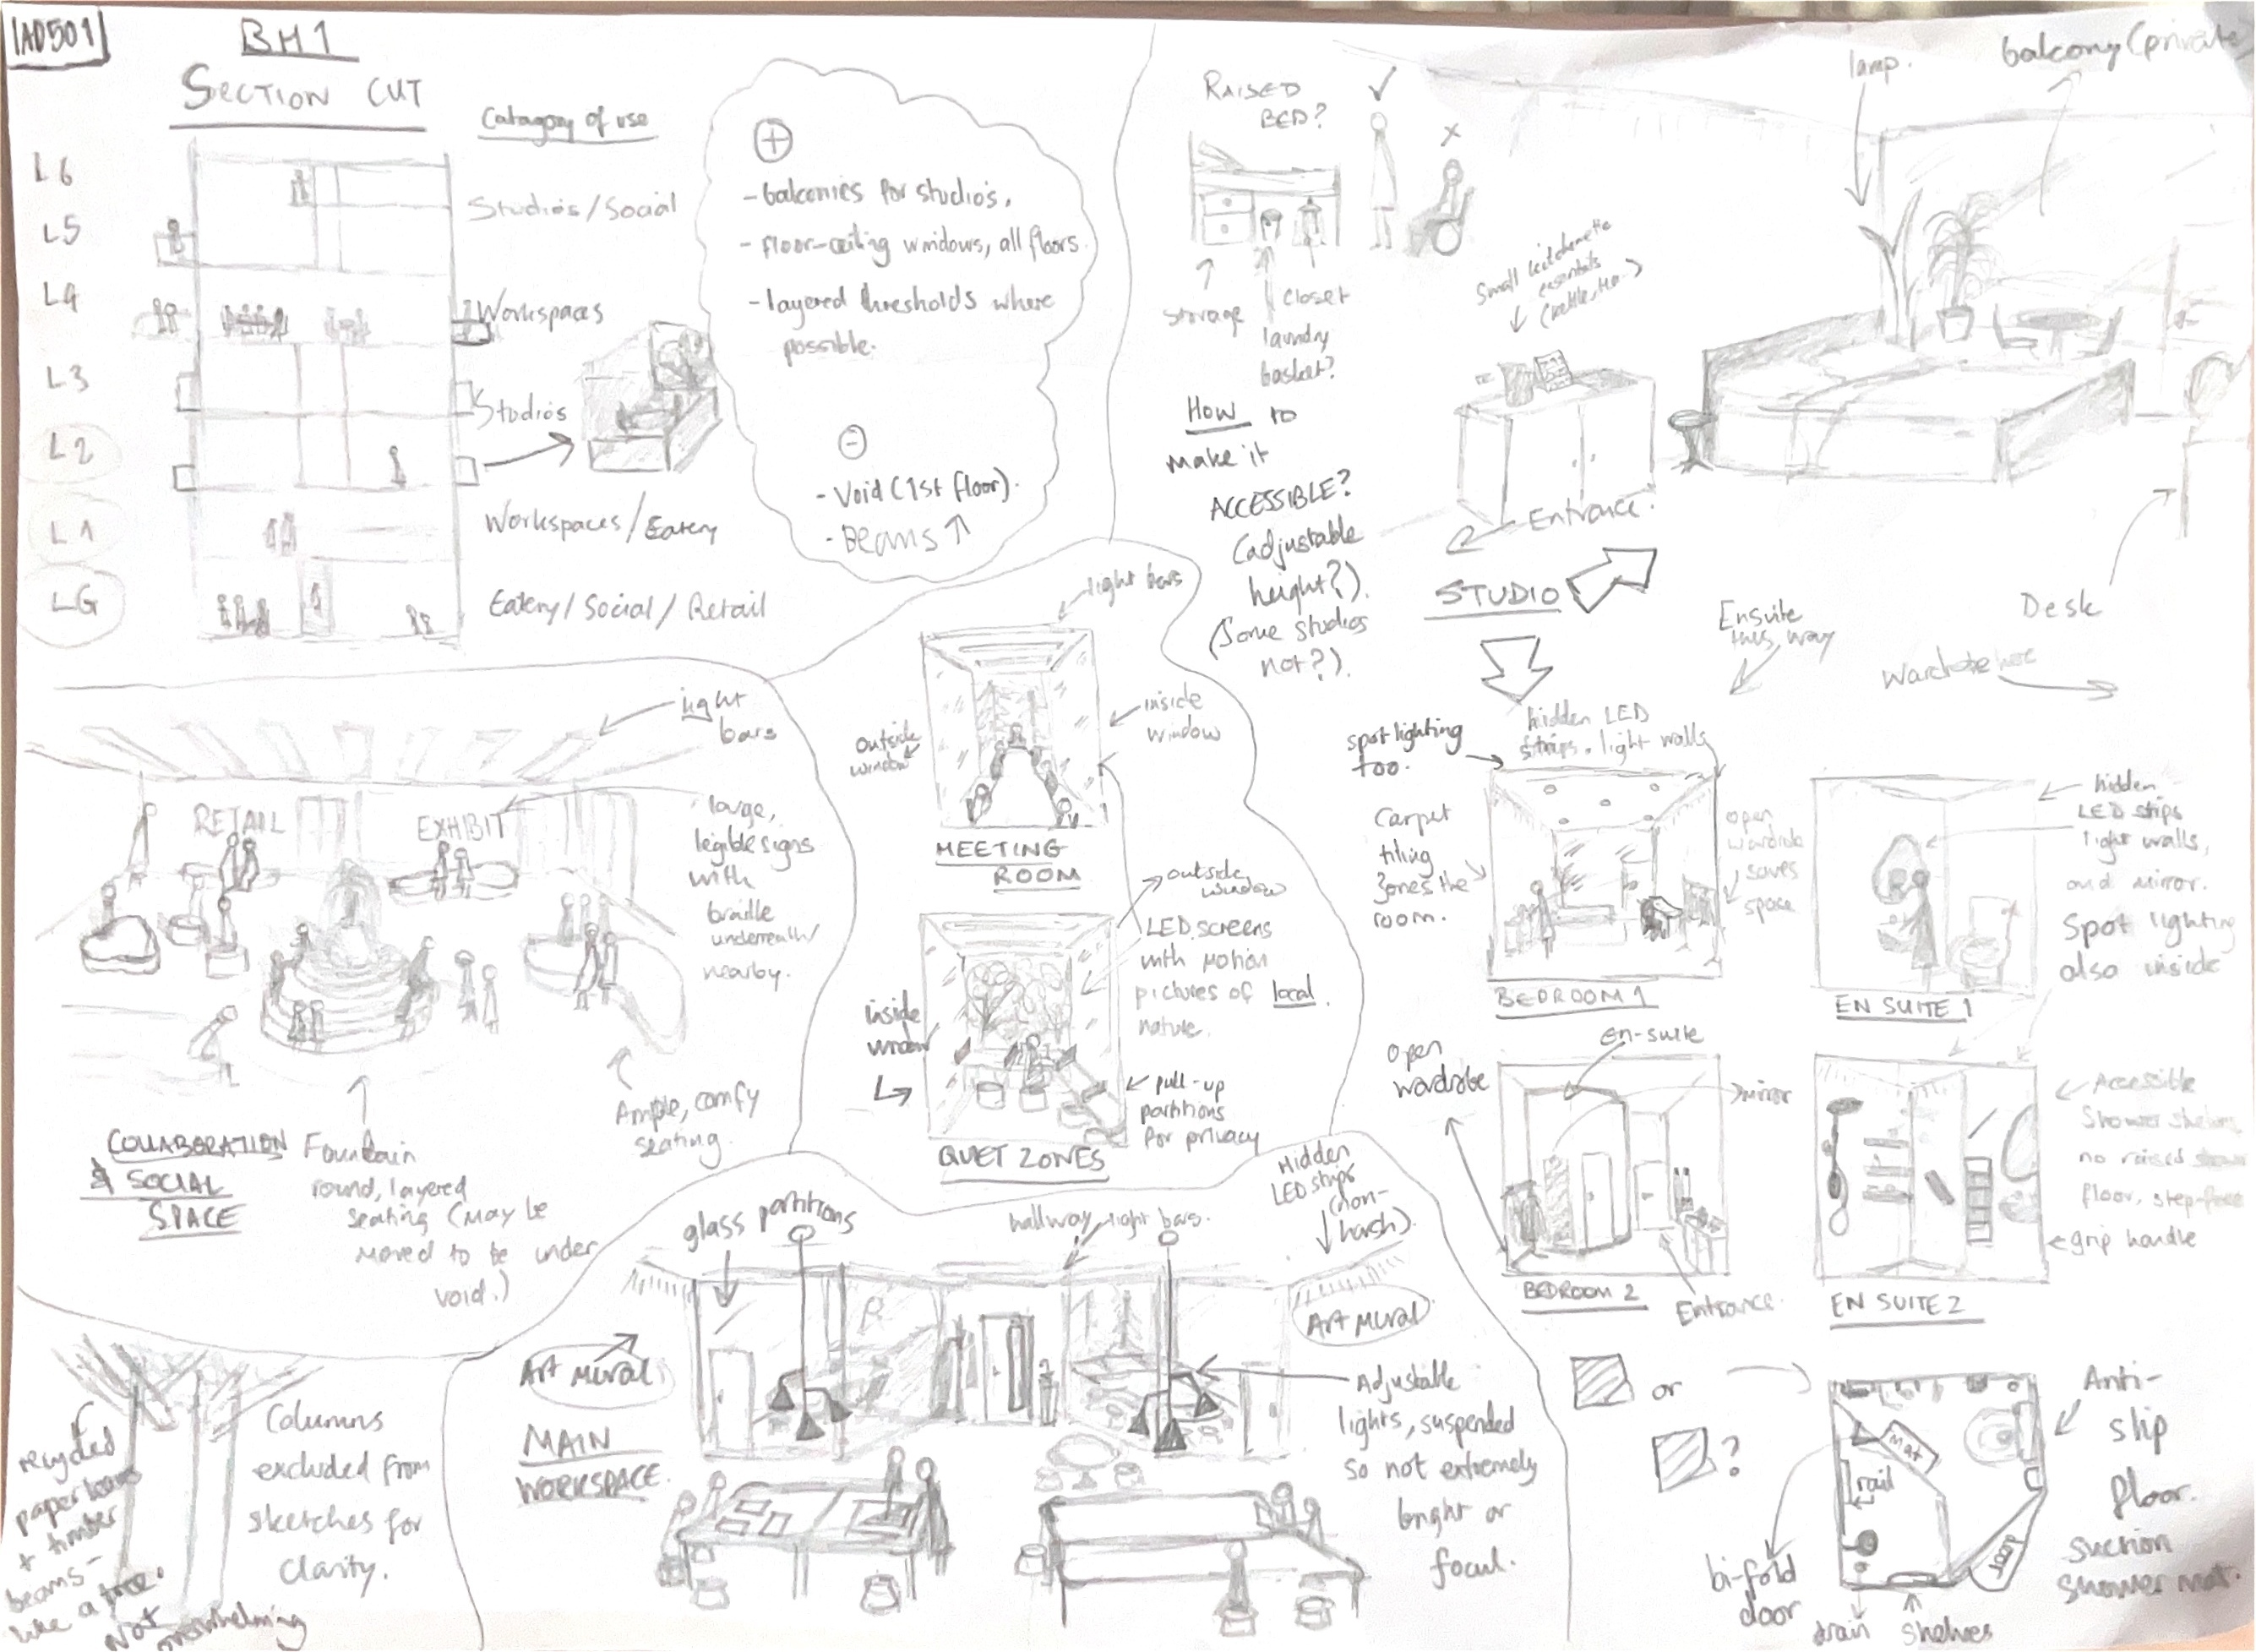 IAD501
BH1
SECTION CUT
Catagory of use
L6
L5
L4
L3
L2
L1
LG
Studios/Social
Workspaces
Studios
Workspaces/Eatery
Eatery/Social/Retail
+
- balconies for studio's,
- floor-ceiling windows, all floors
- layered thresholds where
possible.
-
- Void (1st floor).
- Beams ↑
RAISED
BED?
✓
x
Storage
Closet
laundry
basket?
How to
make it
ACCESSIBLE?
(adjustable
height?).
(Some studios
not?).
Small kitchenette
essentials
lamp.
balcony (private)
Entrance.
STUDIO
Desk
Ensuite
this way
Wardrobe
light
bars
RETAIL
EXHIBIT
large,
legible signs
with
braille
underneath/
nearby.
Ample, comfy
seating.
COLLABORATION
& SOCIAL
SPACE
Fountain
round, layered
seating (may be
moved to be under
void.)
light bars
outside
window
inside
window
MEETING
ROOM
outside
window
LED screens
with motion
pictures of local
nature.
inside
window
pull-up
partitions
for privacy
QUIET ZONES
spot lighting
too.
hidden LED
strips. light walls
Carpet
tiling
zones the
room.
open
wardrobe
saves
space
BEDROOM 1
hidden
LED strips
light walls,
and mirror.
Spot lighting
also inside
EN SUITE 1
open
wardrobe
en-suite
mirror
BEDROOM 2
Entrance.
Accessible
shower shelves
no raised shower
floor, step-free
grip handle
EN SUITE 2
recycled
paper
+ timber
beams-
like a tree.
Not
overwhelming
Columns
excluded from
sketches for
clarity.
glass partitions
hallway light bars.
Hidden
LED strips
(non-
harsh).
Art Mural
Art Mural
MAIN
WORKSPACE.
Adjustable
lights, suspended
so not extremely
bright or
focul.
or
?
mat
rail
door
bi-fold
door
drain
shelves
Anti-
slip
floor.
suction
shower mat.